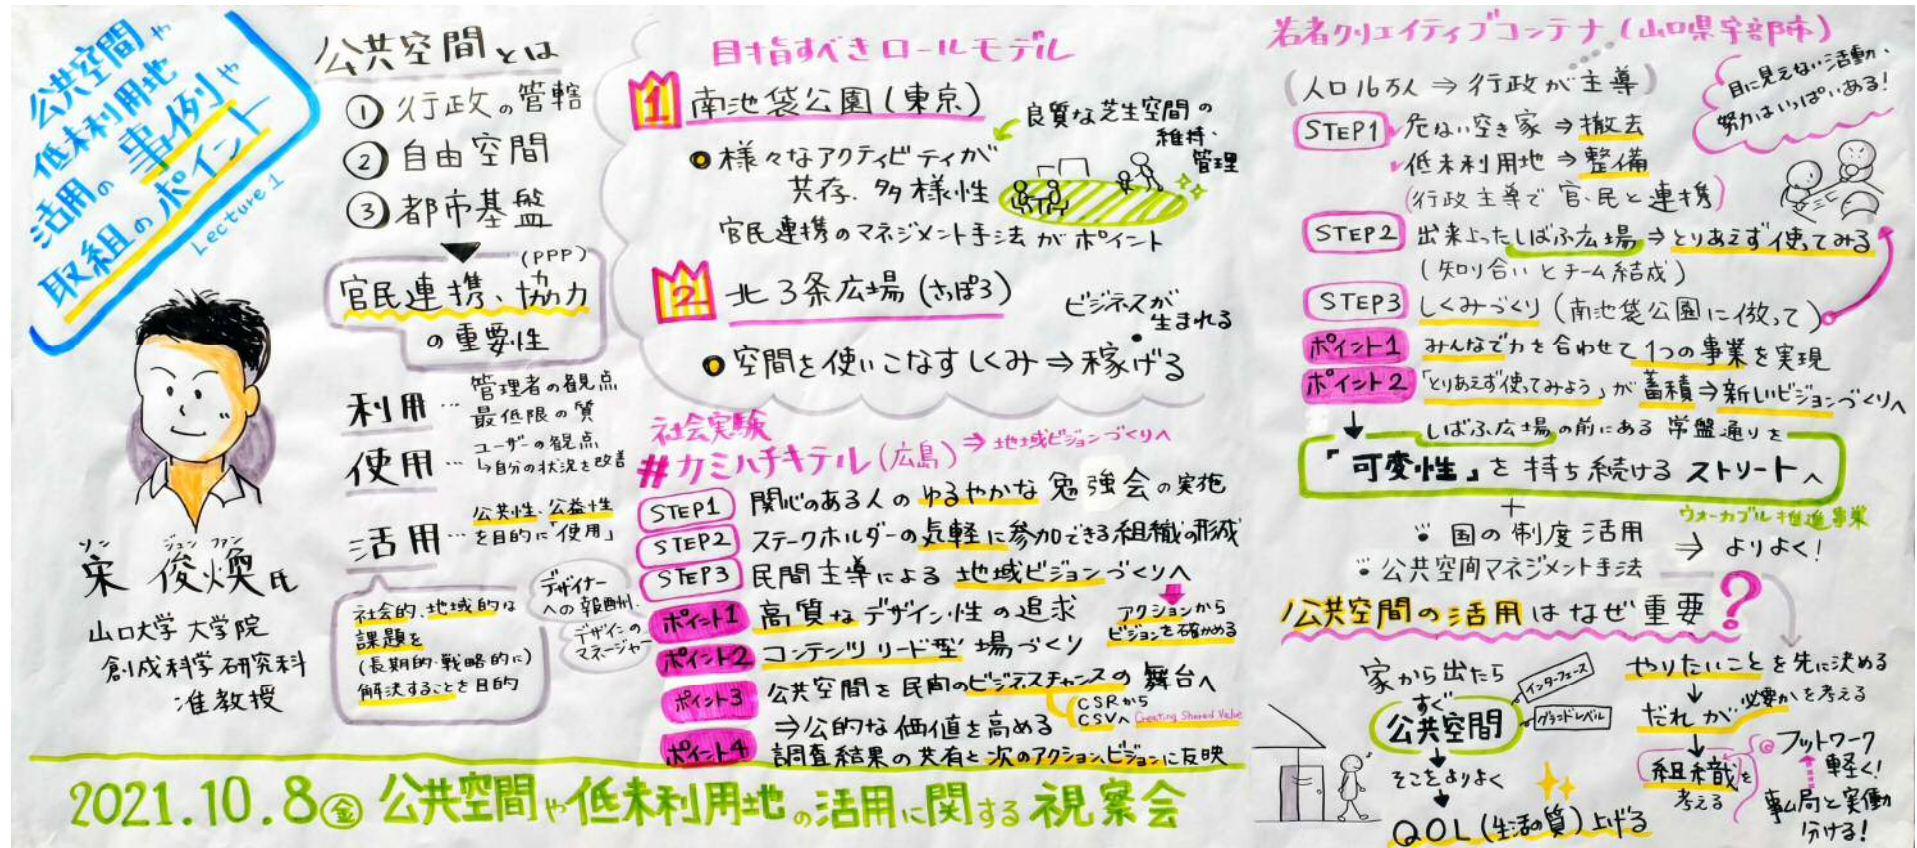 公共空間や
低未利用地
活用の事例や
取組のポイント
Lecture 1
ソン ジュン ファン
宋 俊煥氏
山口大学 大学院
創成科学研究科
准教授
公共空間とは
① 行政の管轄
② 自由空間
③ 都市基盤
(PPP)
官民連携、協力
の重要性
利用…管理者の観点
最低限の質
使用…ユーザーの観点
↳自分の状況を改善
活用…公共性、公益性
を目的に「使用」
社会的、地域的な
課題を
(長期的・戦略的に)
解決することを目的
デザイナー
への報酬
デザインの
マネージャー
目指すべきロールモデル
1 南池袋公園(東京)
良質な芝生空間の
維持・
管理
様々なアクティビティが
共存、多様性
官民連携のマネジメント手法がポイント
2 北3条広場(さっぽろ)
ビジネスが
生まれる
空間を使いこなすしくみ⇒稼げる
社会実験
#カミハチキテル(広島)⇒地域ビジョンづくりへ
STEP1 関心のある人のゆるやかな勉強会の実施
STEP2 ステークホルダーの気軽に参加できる組織の形成
STEP3 民間主導による地域ビジョンづくりへ
アクションから
ビジョンを確かめる
ポイント1 高質なデザイン性の追求
ポイント2 コンテンツリード型場づくり
ポイント3 公共空間を民間のビジネスチャンスの舞台へ
⇒公的な価値を高める
CSRから
CSVへ Creating Shared Value
ポイント4 調査結果の共有と次のアクション、ビジョンに反映
若者クリエイティブコンテナ(山口県宇部市)
(人口16万人⇒行政が主導)
目に見えない活動、
努力はいっぱいある!
STEP1 危ない空き家⇒撤去
低未利用地⇒整備
(行政主導で官、民と連携)
STEP2 出来上ったしばふ広場⇒とりあえず使ってみる
(知り合いとチーム結成)
STEP3 しくみづくり(南池袋公園に倣って)
ポイント1 みんなで力を合わせて1つの事業を実現
ポイント2 「とりあえず使ってみよう」が蓄積⇒新しいビジョンづくりへ
しばふ広場の前にある常盤通りを
「可変性」を持ち続けるストリートへ
+
ウォーカブル推進事業
国の制度活用
⇒よりよく!
公共空間マネジメント手法
公共空間の活用はなぜ重要?
家から出たら
すぐ
公共空間
インターフェース
グランドレベル
そこをよりよく
QOL(生活の質)上げる
やりたいことを先に決める
だれが必要かを考える
組織を
考える
フットワーク
軽く!
事ム局と実働
分ける!
2021.10.8㊎ 公共空間や低未利用地の活用に関する視察会